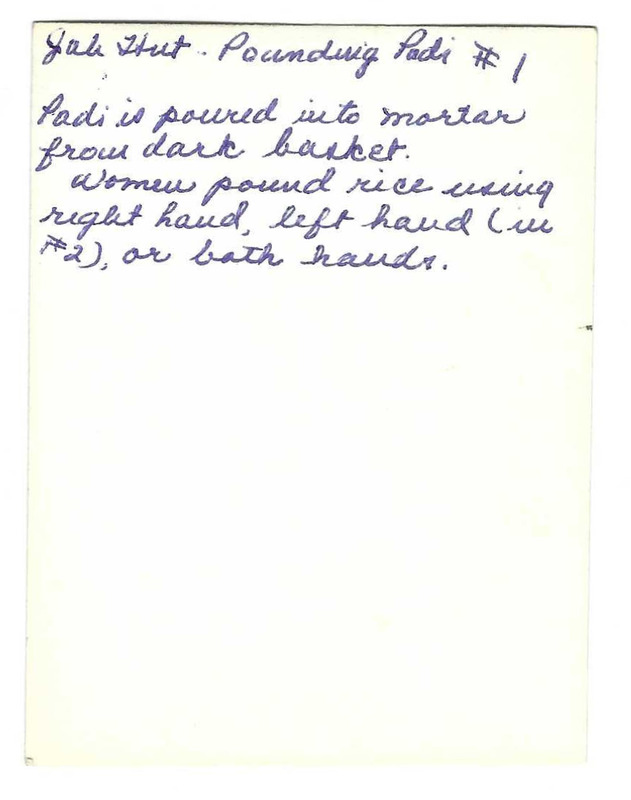 Jah Hut - Pounding Padi #1
Padi is poured into mortar
from dark basket.
Women pound rice using
right hand, left hand (in
#2), or both hands.